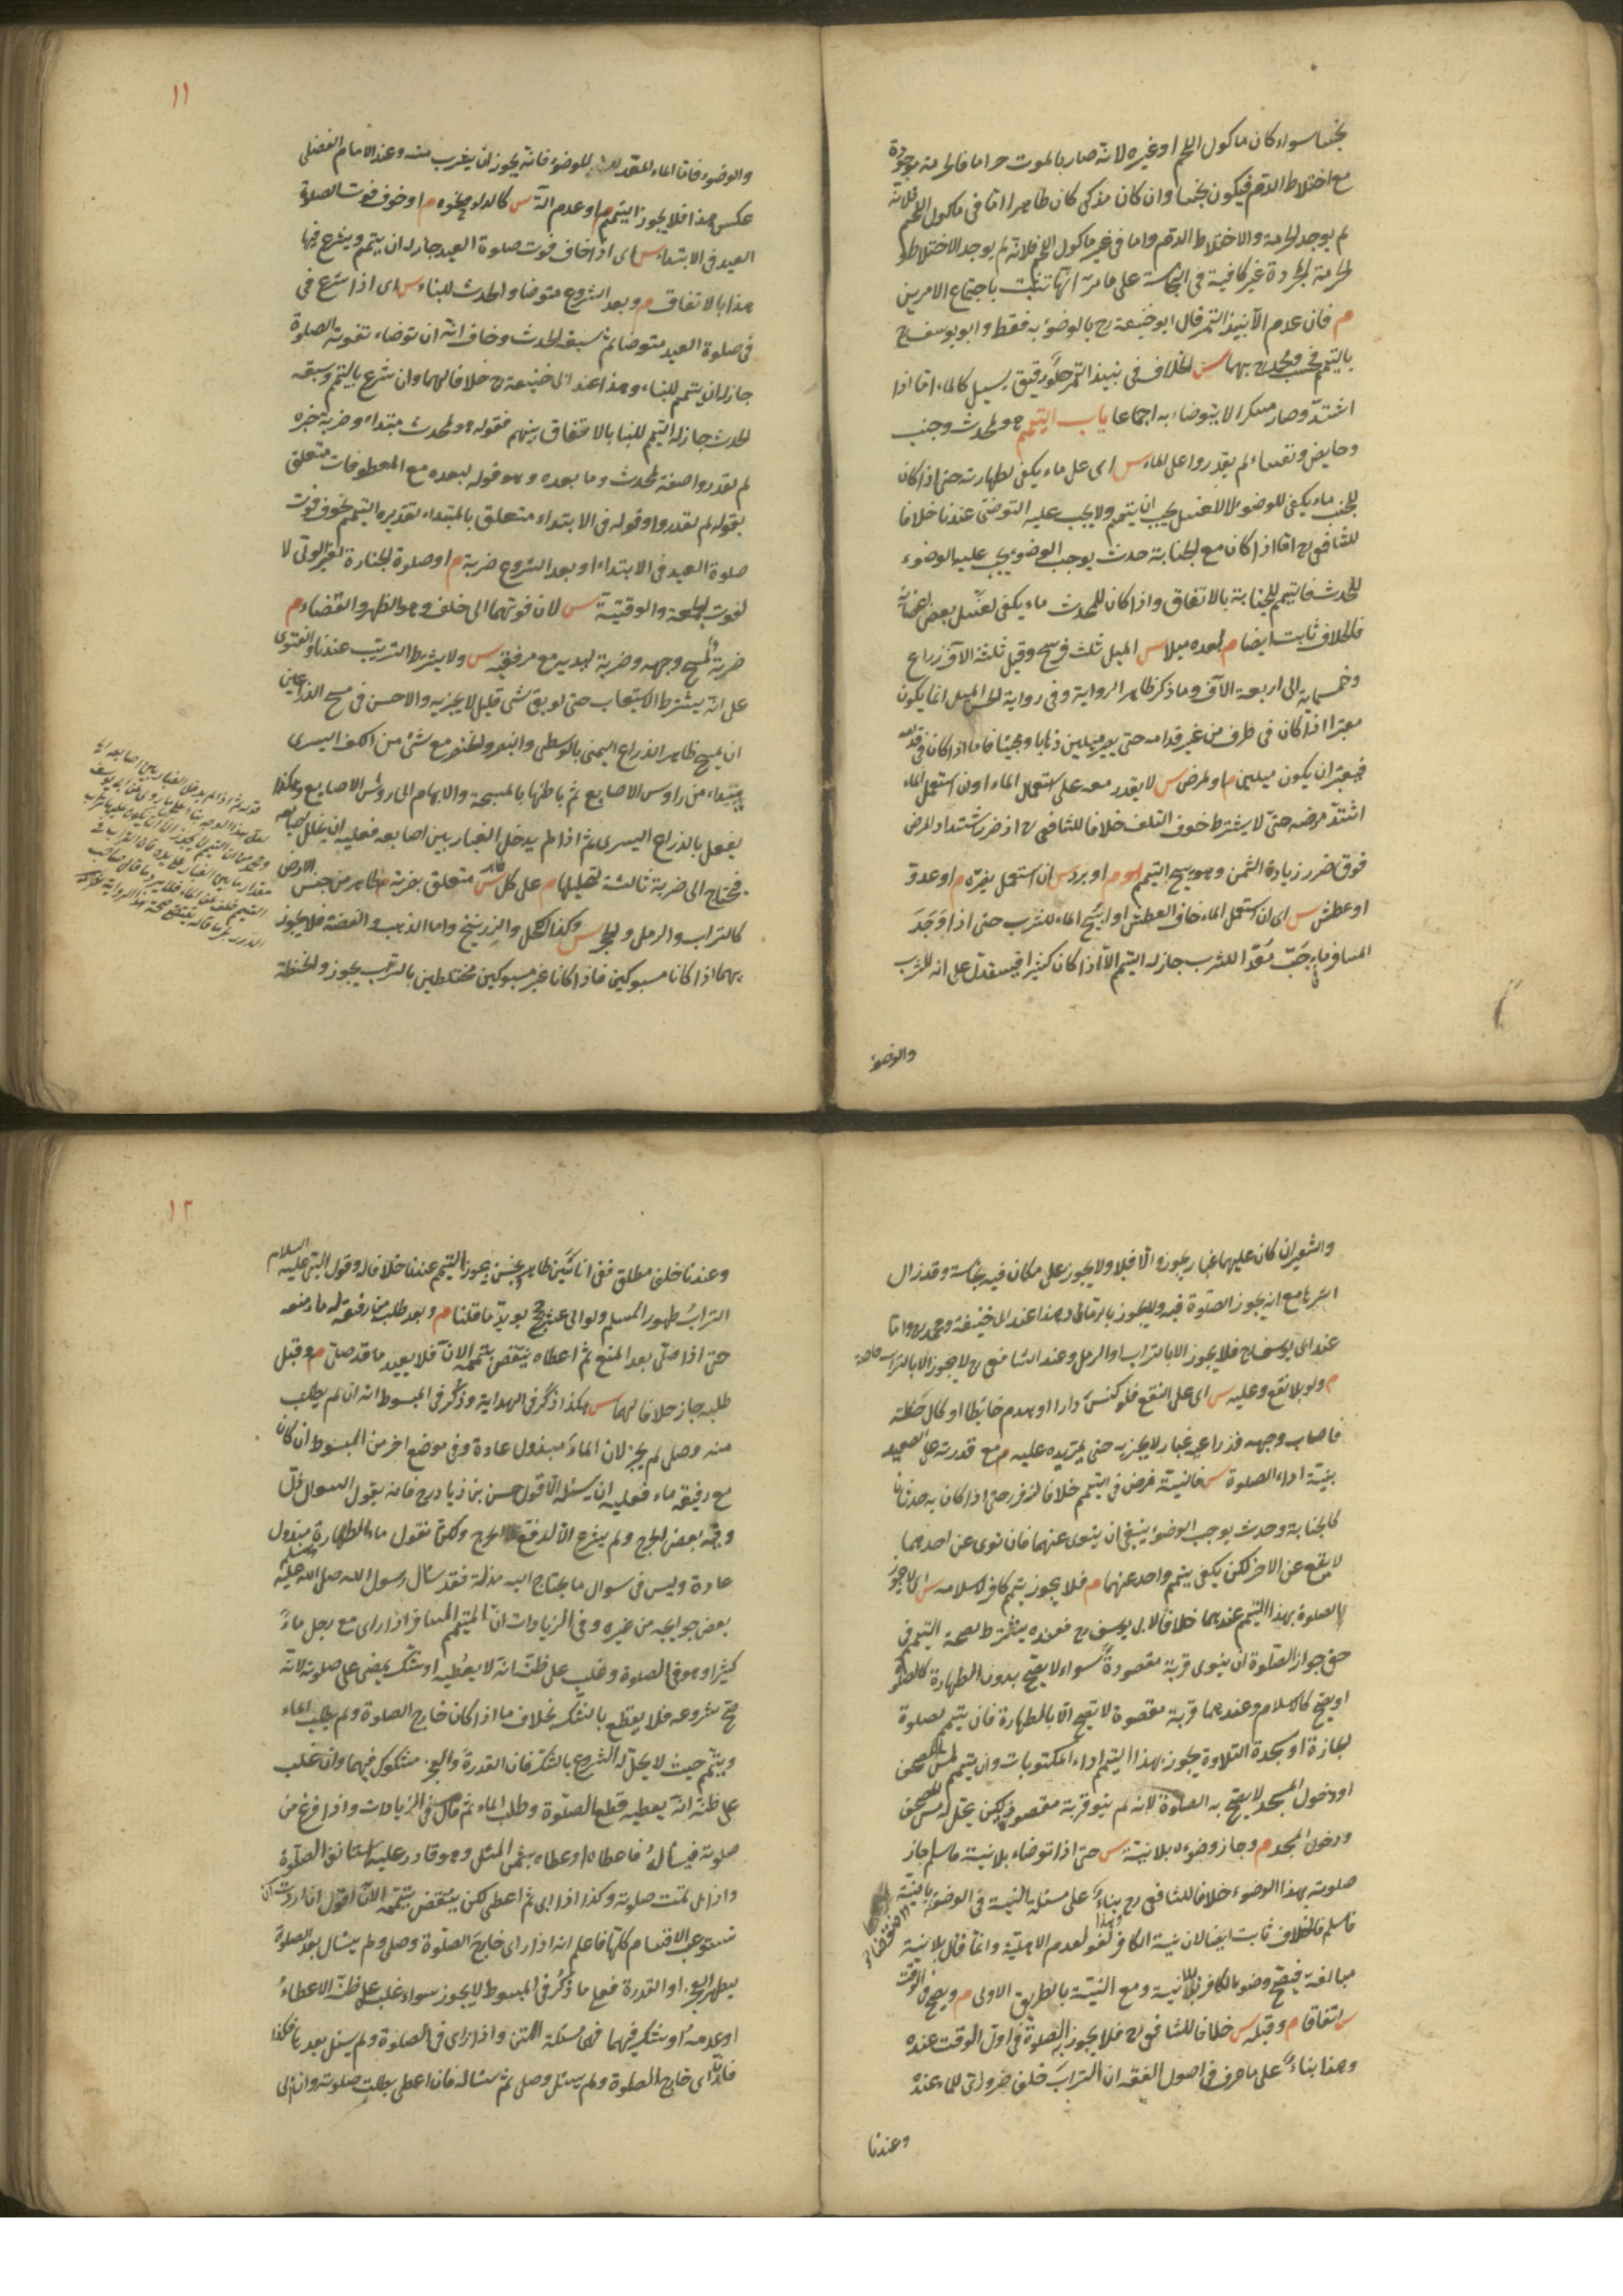 نجسا سواء كان ماكول اللحم او غيره لانه صار بالموت حراما فالحرمة موجودة
مع اختلاط الدم فيكون نجسا وان كان مذكى كان طاهرا اما فى ماكول اللحم فلانه
لم يوجد الحرمة والاختلاط الدم واما فى غير ماكول اللحم فلانه لم يوجد الاختلاط و
الحرمة المجردة غير كافية فى النجاسة على ما مر انها تثبت باجتماع الامرين
م فان عدم الا نبيذ التمر قال ابو حنيفة رح بالوضوء به فقط وابو يوسف رح
بالتيمم فحسب ومحمد رح بهما س الخلاف فى نبيذ التمر حلو رقيق يسيل كالماء اما اذا
اشتد وصار مسكرا لا يتوضاء به اجماعا باب التيمم م لمحدث وجنب
وحايض ونفساء لم يقدروا على الماء س اى على ماء يكفى لطهارته حتى اذا كان
للجنب ماء يكفى للوضوء لا للغسل يجب ان يتيمم ولا يجب عليه التوضى عندنا خلافا
للشافعى رح اما اذا كان مع الجنابة حدث يوجب الوضوء يجب عليه الوضوء
للحدث فالتيمم للجنابة بالاتفاق واذا كان للمحدث ماء يكفى لغسل بعض اعضائه
فالخلاف ثابت ايضا م لبعده ميلا س الميل ثلث فرسخ وقيل ثلثة الاف ذراع
وخمسماية الى اربعة الاف وما ذكر ظاهر الرواية وفى رواية الحسن الميل انما يكون
معتبرا اذا كان فى طرف من غير قدامه حتى يصير ميلين ذهابا ومجيئا فاما اذا كان فى قدامه
فيعتبر ان يكون ميلين م او لمرض س لا يقدر معه على استعمال الماء او ان استعمل الماء
اشتد مرضه حتى لا يشترط خوف التلف خلافا للشافعى رح اذ ضرر اشتداد المرض
فوق ضرر زيادة الثمن وهو يبيح التيمم م او برد س ان استعمل يضره م او عدو
او عطش س اى ان استعمل الماء خاف العطش او ابيح الماء للشرب حتى اذا وجد
المسافر ماء فى حب معدا للشرب جاز له التيمم الا اذا كان كثيرا فيستدل على انه للشرب
والوضوء
١١
والوضوء فاما الماء المعد للوضوء فانه يجوز ان يشرب منه وعند الامام الفضلى
عكس هذا فلا يجوز التيمم م او عدم الة س كالدلو ونحوه م او خوف فوت الصلوة
العيد فى الابتداء س اى اذا خاف فوت صلوة العيد جاز له ان يتيمم ويشرع فيها
هذا بالاتفاق م وبعد الشروع متوضا والحدث للبناء س اى اذا شرع فى
فى صلوة العيد متوضا ثم سبقه الحدث وخاف انه ان توضاء تفوته الصلوة
جاز له ان يتيمم للبناء وهذا عند ابى حنيفة رح خلافا لهما وان شرع بالتيمم وسبقه
الحدث جاز له التيمم للبنا بالاتفاق بينهم فقوله ولمحدث مبتداء وضربة خبره
لم يقدروا صفة لمحدث وما بعده وهو قوله لبعده مع المعطوفات متعلق
بقوله لم يقدروا وقوله فى الابتداء متعلق بالمبتداء تقديره التيمم لخوف فوت
صلوة العيد فى الابتداء او بعد الشروع ضربة م او صلوة الجنازة لغير الولى لا
لفوت الجمعة والوقتية س لان فوتهما الى خلف وهو الظهر والقضاء م
ضربة لمسح وجهه وضربة ليديه مع مرفقيه س ولا يشترط الترتيب عندنا والفتوى
على انه يشترط الاستيعاب حتى لو بقى شى قليل لا يجزيه والاحسن فى مسح الذراعين
ان يمسح ظاهر الذراع اليمنى بالوسطى والبنصر والخنصر مع شئ من الكف اليسرى
مبتداء من راوس الاصابع ثم باطنها بالمسبحة والابهام الى راوس الاصابع وهكذا
يفعل بالذراع اليسرى ثم اذا لم يدخل الغبار بين اصابعه فعليه ان يخلل اصابعه
فيحتاج الى ضربة ثالثة لتخليلها م على كل طاهر س متعلق بضربة م طاهر من جنس الارض
كالتراب والرمل والحجر س وكذا الكحل والزرنيخ واما الذهب والفضة فلا يجوز
بهما اذا كانا مسبوكين فاذا كانا غير مسبوكين مختلطين بالتراب يجوز والحنطة
١٢
والشعير ان كان عليهما غبار يجوز والا فلا ولا يجوز على مكان فيه نجاسة وقد زال
اثرها مع انه يجوز الصلوة فيه ولا يجوز بالرماد وهذا عند ابى حنيفة ومحمد رح واما
عند ابى يوسف رح فلا يجوز الا بالتراب او الرمل وعند الشافعى رح لا يجوز الا بالتراب خاصة
م ولو بلا نقع وعليه س اى على النقع فلو كنس دارا او هدم حائطا او كال حنطة
فاصاب وجهه وذراعيه غبار لا يجزيه حتى يمر يده عليه م مع قدرته على الصعيد
بنية اداء الصلوة س فالنية فرض فى التيمم خلافا لزفر رح حتى اذا كان به حدثان
كالجنابة وحدث يوجب الوضوء ينبغى ان ينوى عنهما فان نوى عن احدهما
لا يقع عن الاخر لكن يكفى تيمم واحد عنهما م فلا يجوز تيمم كافر لاسلامه س اى لا يجوز
الصلوة بهذا التيمم عندهما خلافا لابى يوسف رح فعنده يشترط لصحة التيمم فى
حق جواز الصلوة ان ينوى قربة مقصودة سواء لا يصح بدون الطهارة كالصلوة
او يصح كالاسلام وعندهما قربة مقصودة لا تصح الا بالطهارة فان تيمم لصلوة
الجنازة او سجدة التلاوة يجوز بهذا التيمم اداء المكتوبات وان تيمم لمس المصحف
او دخول المسجد لا يصح به الصلوة لانه لم ينو قربة مقصودة لكن يحل له مس المصحف
ودخول المسجد م وجاز وضوءه بلا نية س حتى اذا توضاء بلا نية فاسلم جاز
صلوته بهذا الوضوء خلافا للشافعى رح بناء على مسئلة النية فى الوضوء
فاسلم فالخلاف ثابت ايضا لان نية الكافر لغو لعدم الاهلية وانما قال بلا نية
مبالغة فيصح وضوء الكافر بلا نية ومع النية بالطريق الاولى م ويصح فى الوقت
س اتفاقا م وقبله س خلافا للشافعى رح فلا يجوز به الصلوة فى اول الوقت عنده
وهذا بناء على ما عرف فى اصول الفقه ان التراب خلف ضرورى للماء عنده
وعندنا
وعندنا خلف مطلق ففى انائين طاهر ونجس يجوز التيمم عندنا خلافا له وقول النبى عليه السلام
التراب طهور المسلم ولو الى عشر حجج يويد ما قلنا م وبعد طلبه من رفيقه له ماء منعه
حتى اذا صلى بعد المنع ثم اعطاه ينتقض تيممه الان فلا يعيد ما قد صلى م وقبل
طلبه جاز خلافا لهما س هكذا ذكر فى الهداية وذكر فى المبسوط انه ان لم يطلب
منه وصلى لم يجز لان الماء مبذول عادة وفى موضع اخر من المبسوط ان كان
مع رفيقه ماء فعليه ان يسئله الا قول حسن بن زياد رح فانه يقول السوال ذل
وفيه بعض الحرج ولم يشرع الا لدفع الحرج ولكنا نقول ماء الطهارة مبذول
عادة وليس فى سوال ما يحتاج اليه مذلة فقد سأل رسول الله صلى الله عليه وسلم
بعض حوايجه من غيره وفى الزيادات ان المتيمم المسافر اذا راى مع رجل ماء
كثيرا وهو فى الصلوة وغلب على ظنه انه لا يعطيه او شك يمضى على صلوته لانه
صح شروعه فلا يقطع بالشك بخلاف ما اذا كان خارج الصلوة ولم يطلب الماء
وتيمم حيث لا يحل له الشروع بالشك فان القدرة والعجز مشكوك فيهما وان غلب
على ظنه انه يعطيه قطع الصلوة وطلب الماء ثم قال فى الزيادات واذا فرغ من
صلوته فيسأله فاعطاه او اعطاه بثمن المثل وهو قادر عليه استانف الصلوة
واذا ابى تمت صلوته وكذا اذا ابى ثم اعطى لكن ينتقض تيممه الان اقول اذا اردت ان
تستوعب الاقسام كلها فاعلم انه اذا راى خارج الصلوة وصلى ولم يسال بعد الصلوة
ليظهر العجز او القدرة فعلى ما ذكر فى المبسوط لا يجوز سواء غلب على ظنه الاعطاء
او عدمه او شك فيهما فهى مسئلة المتن واذا راى فى الصلوة ولم يسئل بعدها فكذا
فان راى خارج الصلوة ولم يسئل وصلى ثم سئاله فان اعطى بطلت صلوته وان ابى